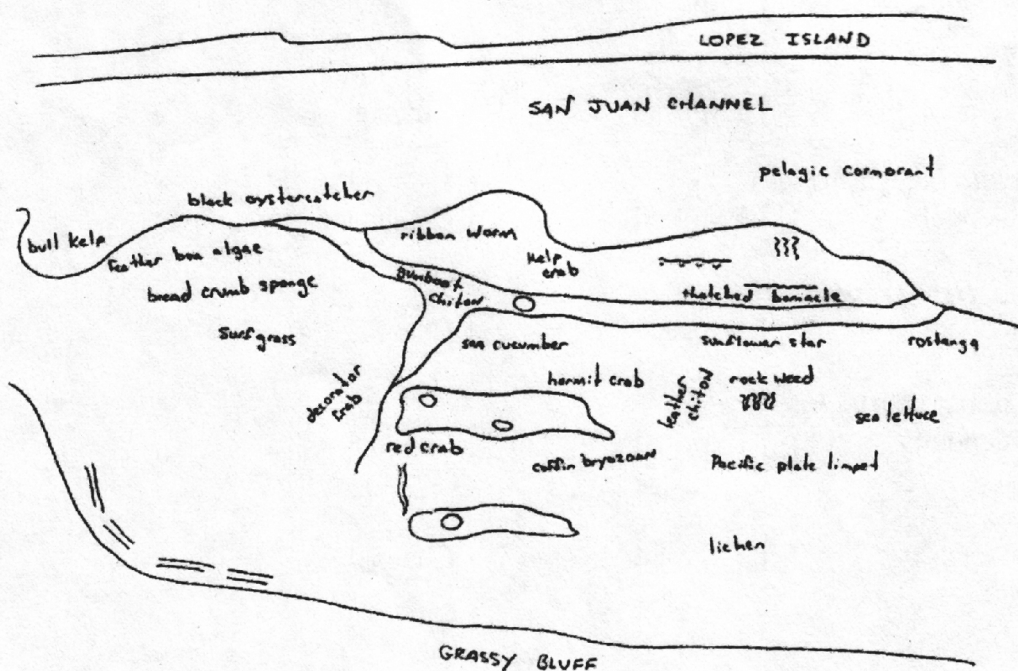 LOPEZ ISLAND
SAN JUAN CHANNEL
pelagic cormorant
black oystercatcher
bull kelp
feather boa algae
ribbon worm
kelp
crab
bread crumb sponge
gumboot
chiton
thatched barnacle
surfgrass
sea cucumber
sunflower star
rostanga
decorator
crab
hermit crab
leather
chiton
rockweed
sea lettuce
red crab
coffin bryozoan
Pacific plate limpet
lichen
GRASSY BLUFF